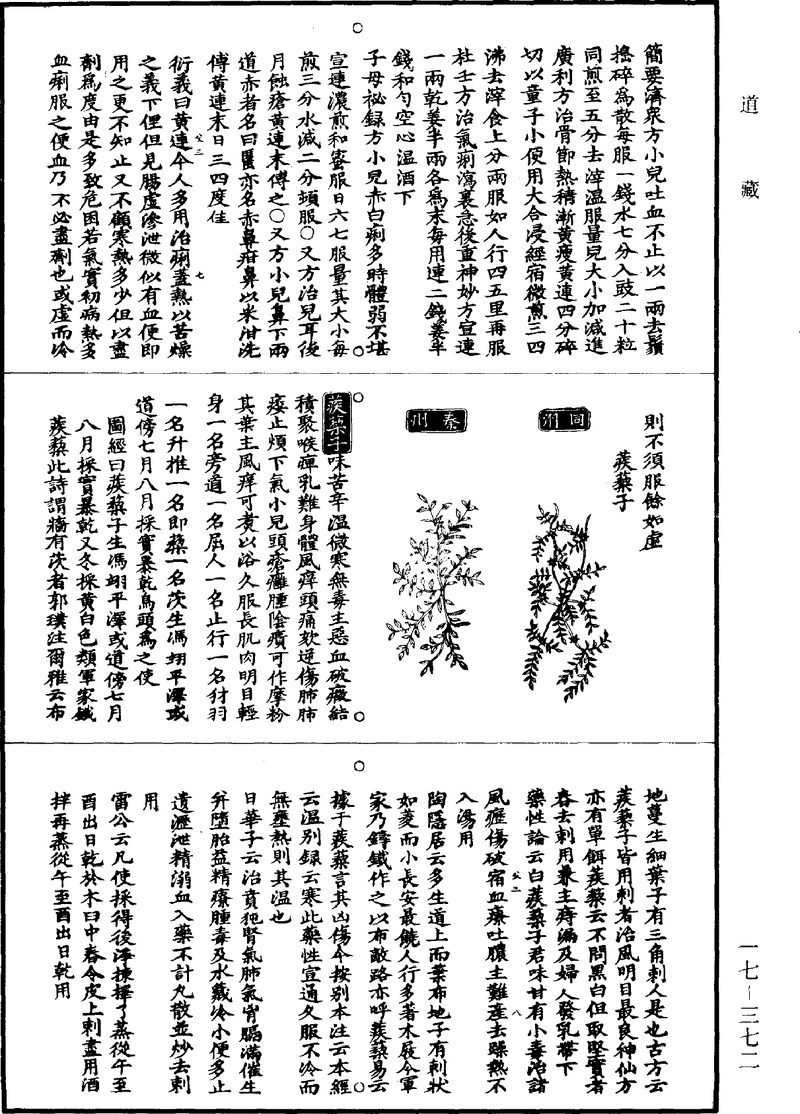 道藏
簡要濟衆方小兒吐血不止以一兩去鬚
搗碎爲散每服一錢水七分入豉二十粒
同煎至五分去滓温服量兒大小加減進
廣利方治骨節熱積漸黄瘦黄連四分碎
切以童子小便用大合浸經宿微煎三四
沸去滓食上分兩服如人行四五里再服
杜壬方治氣痢瀉裏急後重神妙方宣連
一兩乾姜半兩各爲末每用連二錢姜半
錢和勻空心温酒下
子母祕録方小兒赤白痢多時體弱不堪
宣連濃煎和蜜服日六七服量其大小每
煎三分水減二分頭服○又方治兒耳後
月蝕瘡黄連末傅之○又方小兒鼻下兩
道赤者名曰䘌亦名赤鼻疳鼻以米泔洗
傅黄連末日三四度佳
衍義曰黄連今人多用治痢蓋熱以苦燥
之義下俚但見腸虛滲泄微似有血便即
用之更不知止又不顧寒熱多少但以盡
劑爲度由是多致危困若氣實初病熱多
血痢服之便血乃不必盡劑也或虛而冷
則不須服餘如虛
蒺藜子
同州
秦州
蒺藜子味苦辛温微寒無毒主惡血破癥結
積聚喉痺乳難身體風痒頭痛欬逆傷肺肺
痿止煩下氣小兒頭瘡癰腫陰㿉可作摩粉
其葉主風痒可煑以浴久服長肌肉明目輕
身一名旁通一名屈人一名止行一名犲羽
一名升推一名即藜一名茨生馮翊平澤或
道傍七月八月採實暴乾烏頭爲之使
圖經曰蒺藜子生馮翊平澤或道傍七月
八月採實暴乾又冬採黄白色類軍家鐵
蒺藜此詩謂牆有茨者郭璞注爾雅云布
地蔓生細葉子有三角刺人是也古方云
蒺藜子皆用刺者治風明目最良神仙方
亦有單餌蒺藜云不問黑白但取堅實者
舂去刺用兼主痔漏及婦人發乳帶下
藥性論云白蒺藜子君味甘有小毒治諸
風癧傷破宿血療吐膿主難產去躁熱不
入湯用
陶隱居云多生道上而葉布地子有刺狀
如菱而小長安最饒人行多著木屐今軍
家乃鑄鐵作之以布敵路亦呼蒺藜易云
據于蒺藜言其凶傷今按别本注云本經
云温别録云寒此藥性宣通久服不冷而
無壅熱則其温也
日華子云治賁㹠腎氣肺氣胷膈滿催生
并墮胎益精療腫毒及水藏冷小便多止
遺瀝泄精溺血入藥不計丸散並炒去刺
用
雷公云凡使採得後淨揀擇了蒸從午至
酉出日乾於木臼中舂令皮上刺盡用酒
拌再蒸從午至酉出日乾用
一七－三七二